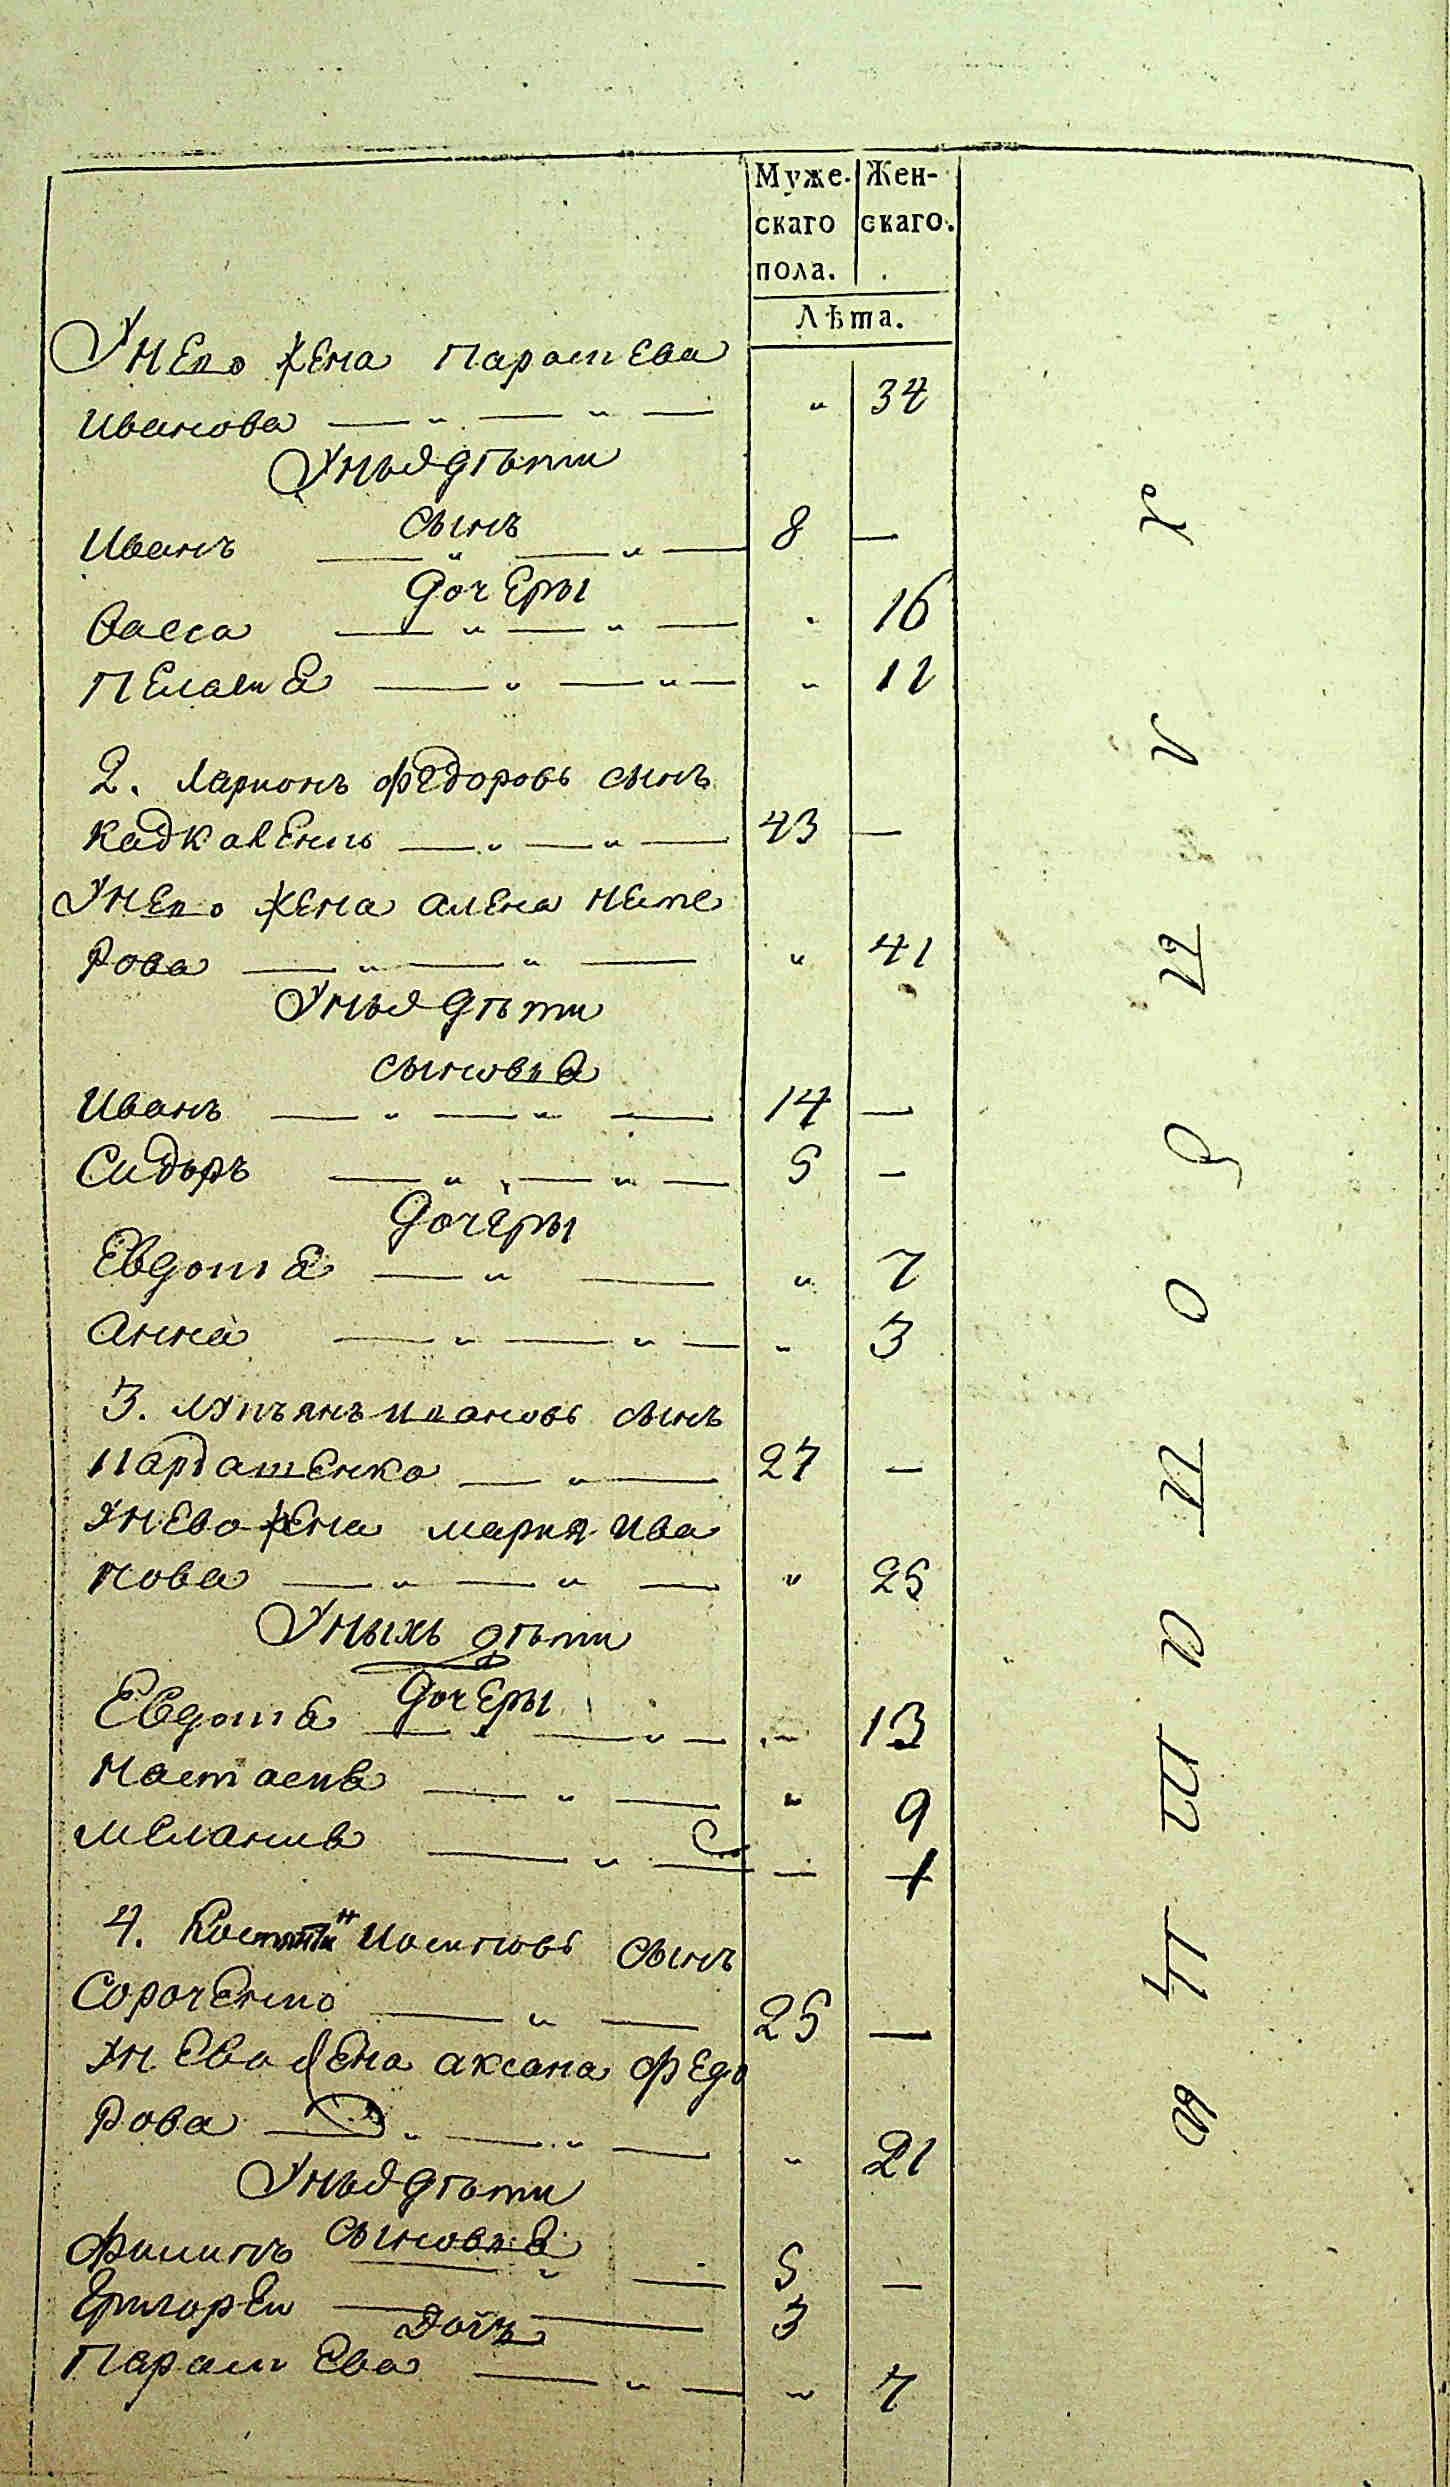 Муже- Жен-
скаго скаго.
пола.
Лѣта.
Унего жена Параскева
Иванова — „ — „ — „ 34
Унихъ дѣти
сынъ
Иванъ — „ — „ — 8 —
дочери
Васса — „ — „ — „ 16
Пелагея — „ — „ — „ 12
2. Ларионъ Федоровъ сынъ
— „ — „ — 43 —
Унего жена Алена Несте
рова — „ — „ — „ 41
Унихъ дѣти
сыновья
Иванъ — „ — „ — 14 —
Сидоръ — „ — „ — 5 —
дочеры
Евдотия — „ — „ 7
Анна — „ — „ — „ 3
3. Лупъянъ Ивановъ сынъ
— „ — 27 —
Унево жена Мария Ива
нова — „ — „ — „ 25
Уныхъ дѣти
дочеры
Евдотия — „ — „ — „ 13
Настасия — „ — „ 9
Мелания — „ — — 1
4. Костянтинъ Иосиповъ сынъ
Сороченко — „ — 25 —
Унево жена Аксана Федо
рова — „ — „ — „ 21
Унихъ дѣти
сыновья
Филипъ — „ — 5 —
Григорей — — 3
дочь
Параскева — „ — „ 7